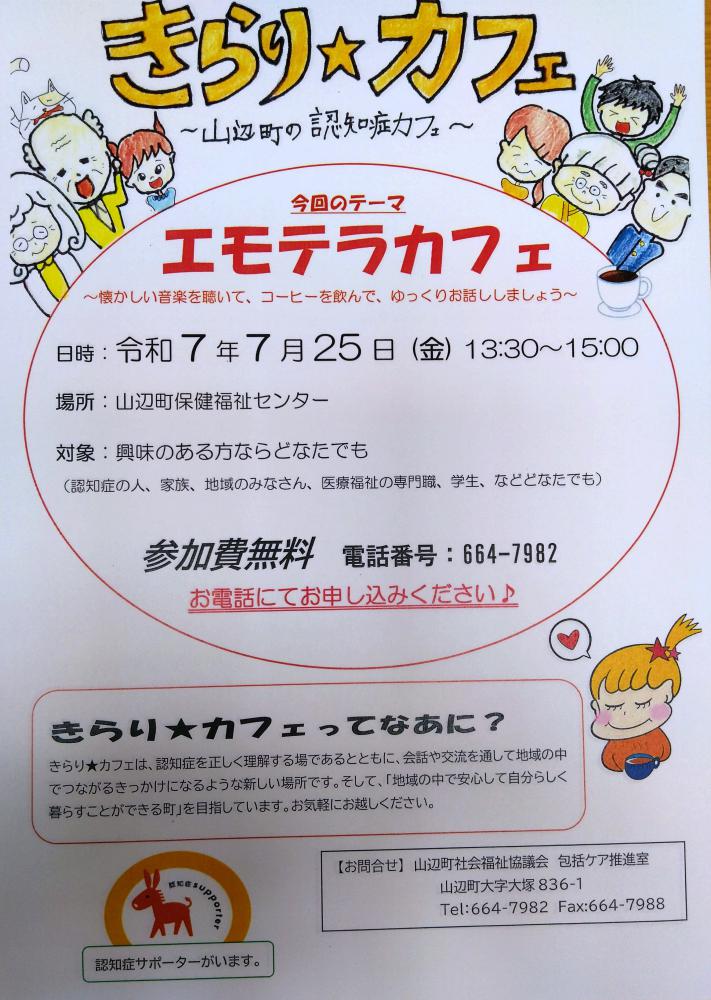 きらり★カフェ
～山辺町の認知症カフェ～
今回のテーマ
エモテラカフェ
～懐かしい音楽を聴いて、コーヒーを飲んで、ゆっくりお話ししましょう～
日時：令和７年７月２５日（金）13:30～15:00
場所：山辺町保健福祉センター
対象：興味のある方ならどなたでも
（認知症の人、家族、地域のみなさん、医療福祉の専門職、学生、などどなたでも）
参加費無料　電話番号：664-7982
お電話にてお申し込みください♪
きらり★カフェってなあに？
きらり★カフェは、認知症を正しく理解する場であるとともに、会話や交流を通して地域の中
でつながるきっかけになるような新しい場所です。そして、「地域の中で安心して自分らしく
暮らすことができる町」を目指しています。お気軽にお越しください。
認知症supporter
認知症サポーターがいます。
【お問合せ】山辺町社会福祉協議会　包括ケア推進室
山辺町大字大塚 836-1
Tel:664-7982 Fax:664-7988